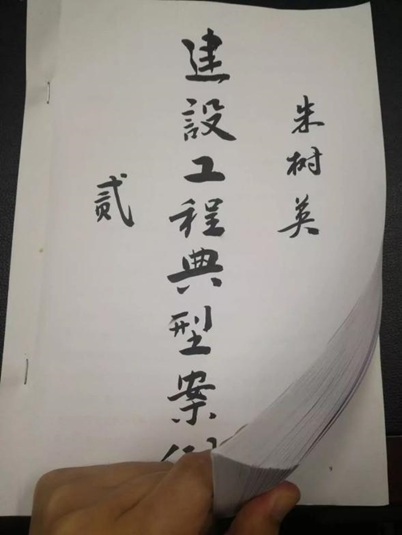 朱树英
建設工程典型案
贰